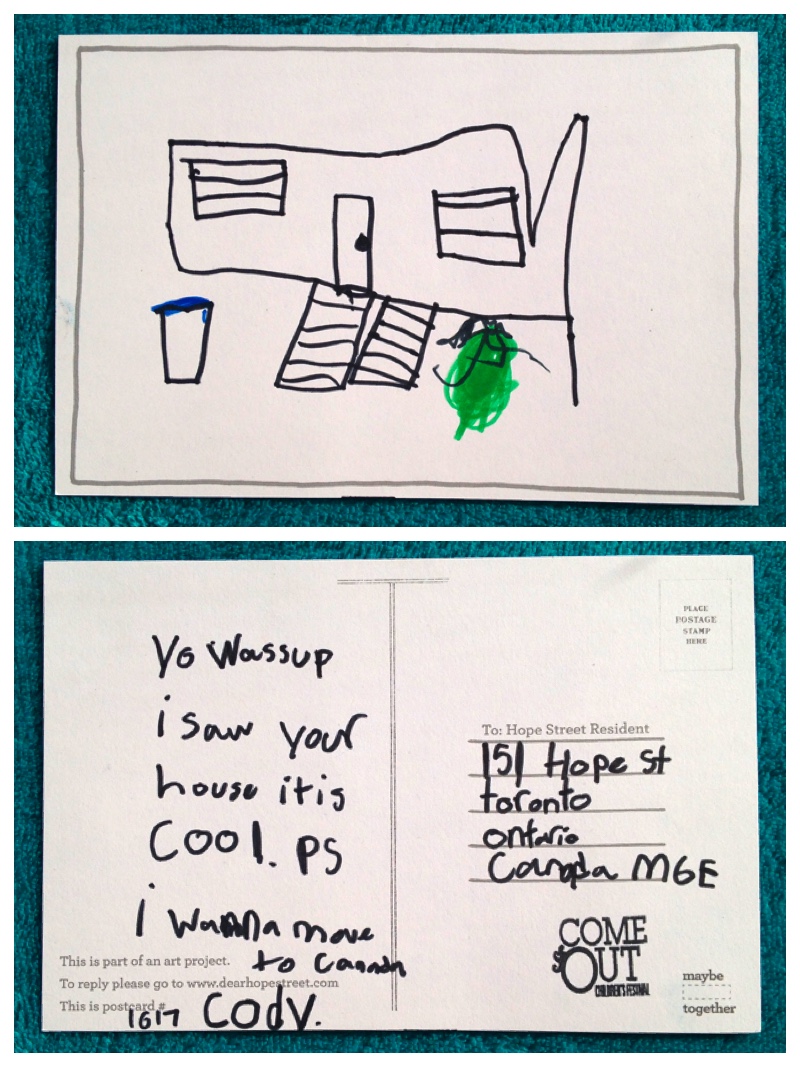 Yo Wassup
i saw your
house it is
cool. ps
i wanna move
to Canada
This is part of an art project.
To reply please go to www.dearhopestreet.com
This is postcard #
1617 Cody.
PLACE
POSTAGE
STAMP
HERE
To: Hope Street Resident
151 Hope st
toronto
ontario
Canada M6E
COME
OUT
CHILDREN'S FESTIVAL
maybe
together